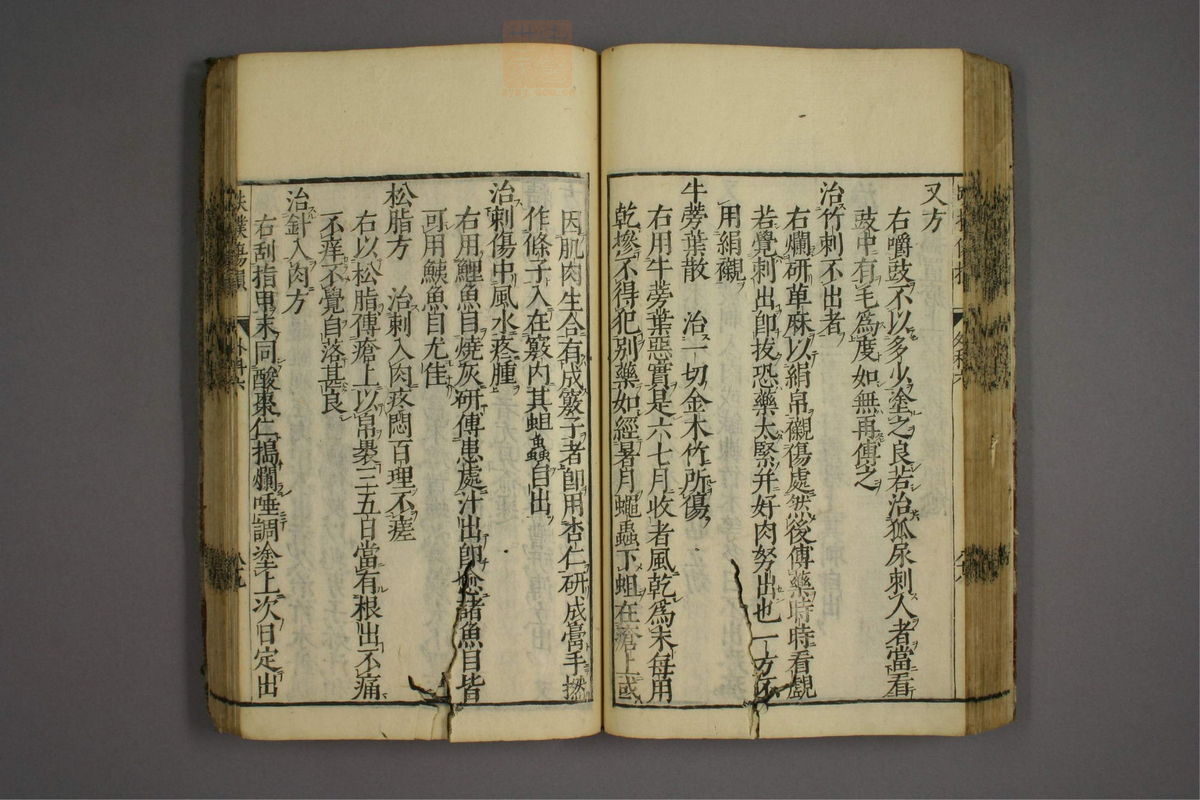 又方
右嚼豉不以多少塗之良若治狐尿刺人者當看
豉中有毛爲度如無再傅之
治竹刺不出者
右爛研萆麻以絹帛襯傷處然後傅藥時時看覷
若覺刺出即拔恐藥太緊并好肉努出也一方不
用絹襯
牛蒡葉散 治一切金木竹所傷
右用牛蒡葉惡實是六七月收者風乾爲末每用
乾摻不得犯別藥如經暑月蠅蟲下蛆在瘡上或
因肌肉生合有成竅子者即用杏仁研成膏手撚
作條子入在竅内其蛆蟲自出
治刺傷中風水疼腫
右用鯉魚目燒灰研傅患處汁出即愈諸魚目皆
可用鯇魚目尤佳
松脂方 治刺入肉疼悶百理不瘥
右以松脂傅瘡上以帛裹三五日當有根出不痛
不痒不覺自落甚良
治針入肉方
右刮指甲末同酸棗仁搗爛唾調塗上次日定出
外科六